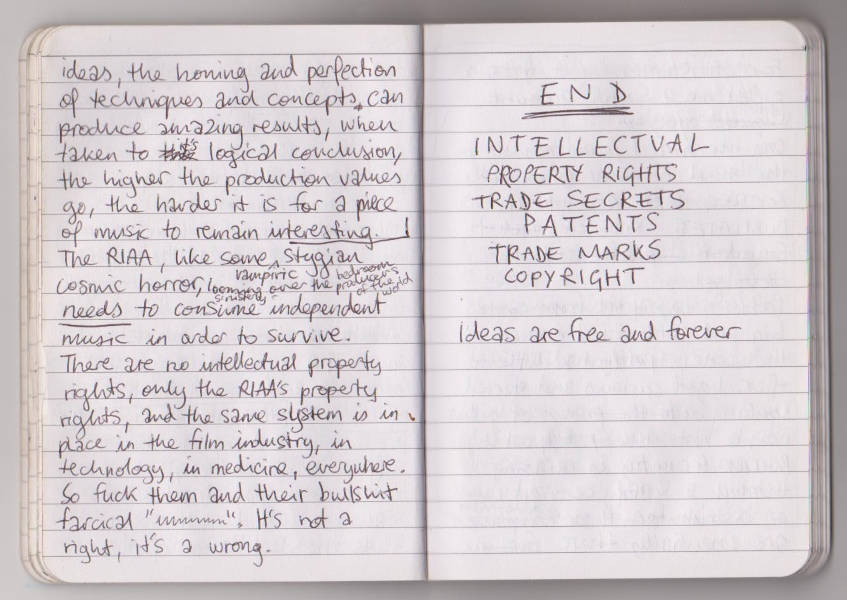 ideas, the honing and perfection
of techniques and concepts, can
produce amazing results, when
taken to it's logical conclusion,
the higher the production values
go, the harder it is for a piece
of music to remain interesting. !
The RIAA, like some vampiric Stygian
cosmic horror, looming sinisterly over the bedroom producers of the world
needs to consume independent
music in order to survive.
There are no intellectual property
rights, only the RIAA's property
rights, and the same system is in
place in the film industry, in
technology, in medicine, everywhere.
So fuck them and their bullshit
farcical "". It's not a
right, it's a wrong.
END
INTELLECTUAL
PROPERTY RIGHTS
TRADE SECRETS
PATENTS
TRADE MARKS
COPYRIGHT
Ideas are free and forever